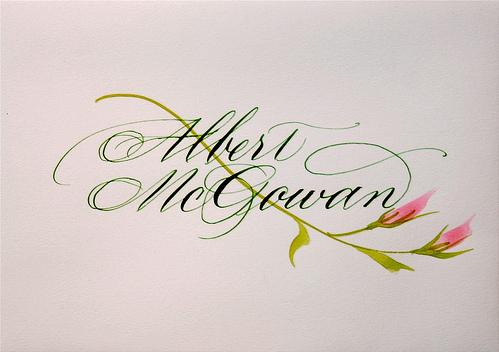 Albert
McGowan